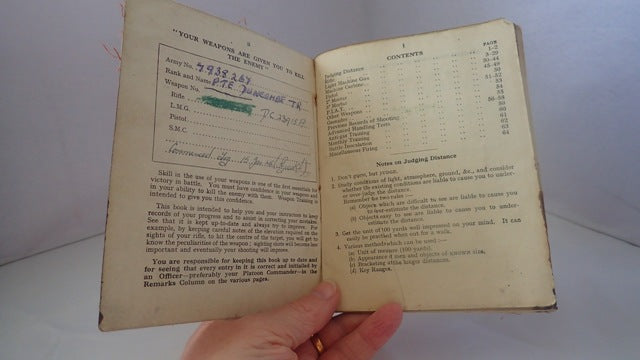 "YOUR WEAPONS ARE GIVEN YOU TO KILL
THE ENEMY"
Army No.
Rank and Name PTE DUNCOMBE TR
Weapon No.
Rifle
L.M.G.
Pistol
S.M.C.
Skill in the use of your weapons is one of the first essentials to
victory in battle. You must have confidence in your weapons and
in your ability to kill the enemy with them. Weapon Training is
intended to give you this confidence.
This book is intended to help you and your instructors to keep
records of your progress and to assist in correcting your mistakes.
See that it is kept up-to-date and always try to improve. For
example, by keeping careful notes of the elevation required on the
sights of your rifle, to hit the centre of the target, you will get to
know the peculiarities of the weapon; sighting shots will become less
important and eventually your shooting will improve.
You are responsible for keeping this book up to date and
for seeing that every entry in it is correct and initialled by
an Officer—preferably your Platoon Commander—in the
Remarks Column on the various pages.
1
CONTENTS
PAGE
Judging Distance 1-2
Rifle 3-29
Light Machine Gun
Machine Carbine
Pistol
2" Mortar
3" Mortar
P.I.A.T.
Other Weapons
Grenades
Previous Records of Shooting
Advanced Handling Tests
Anti-gas Training
Monthly Training
Battle Inoculation
Miscellaneous Firing
Notes on Judging Distance
1. Don't guess, but judge.
2. Study conditions of light, atmosphere, ground, &c., and consider
whether the existing conditions are liable to cause you to under-
or over-judge the distance.
Remember two rules :—
(a) Objects which are difficult to see are liable to cause you
to over-estimate the distance.
(b) Objects easy to see are liable to cause you to under-
estimate the distance.
3. Get the unit of 100 yards well impressed on your mind. It can
easily be practised when out for a walk.
4. Various methods which can be used :—
(a) Unit of measure (100 yards).
(b) Appearance of men and objects of KNOWN size,
(c) Bracketing at the longer distances.
(d) Key Ranges.